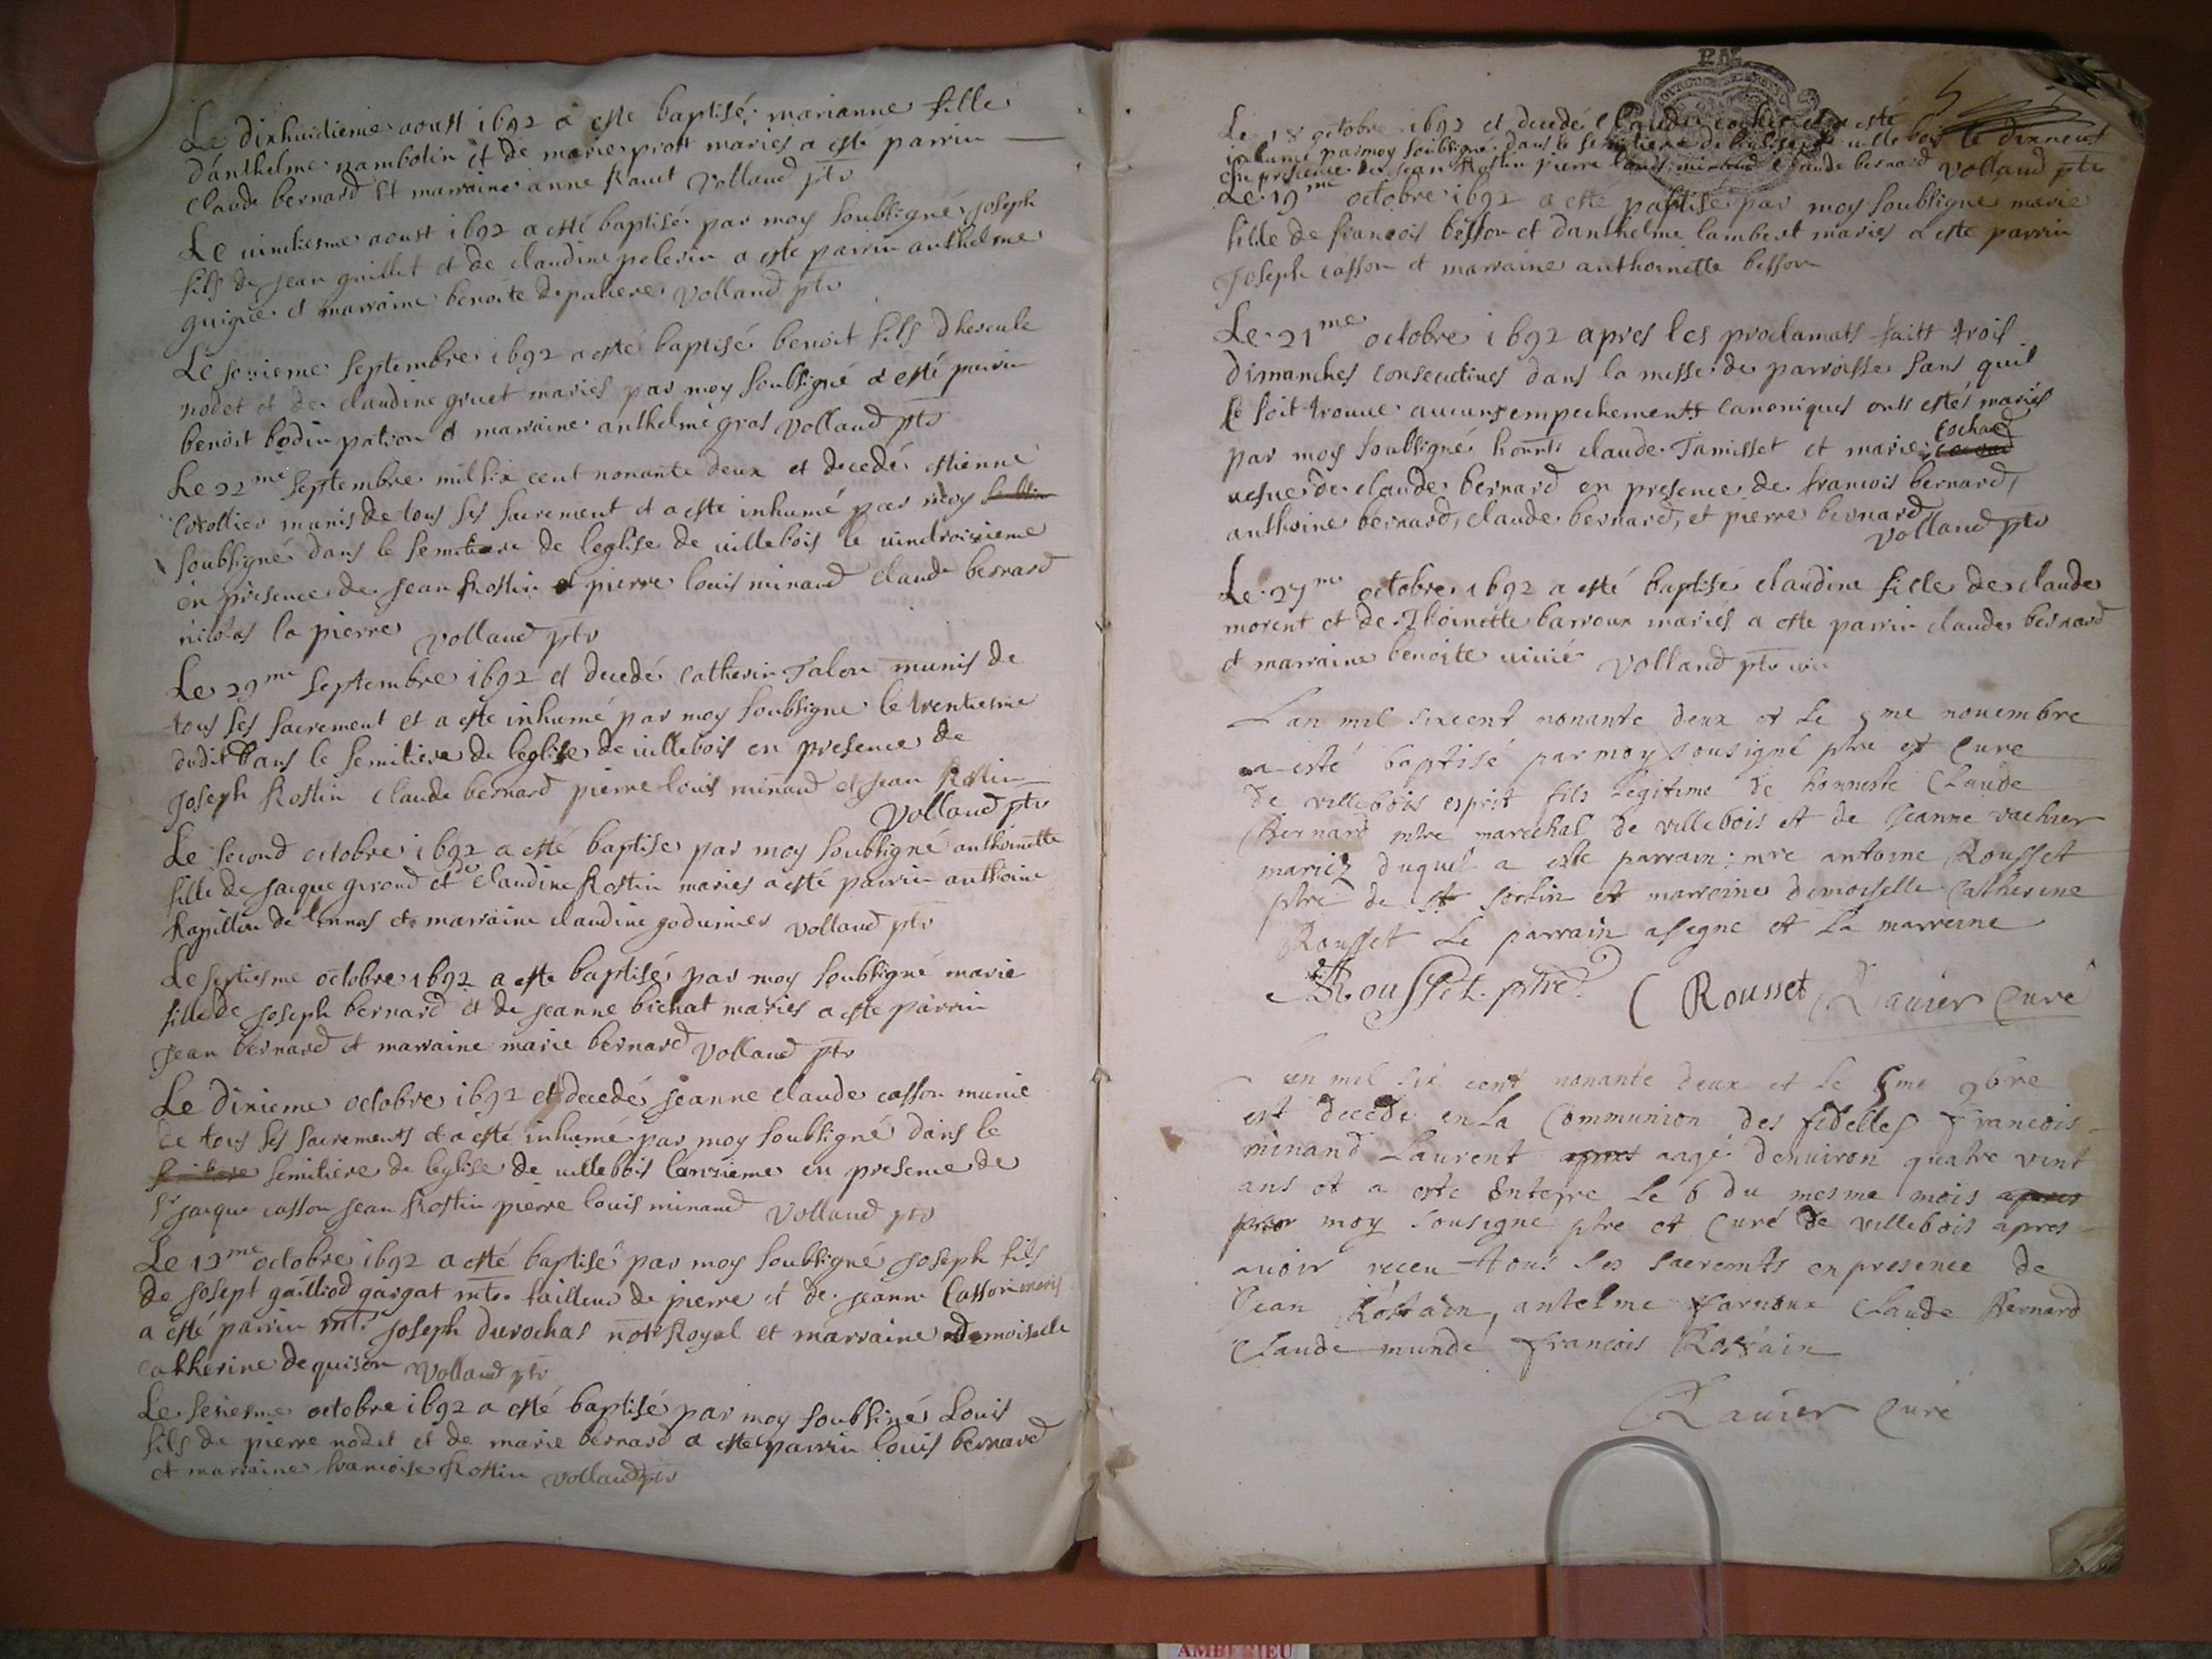 Le dixhuidieme aoust 1692 a esté baptisé marianne fille
d'anthelme nambotin et de marie prost maries a esté parrin
claude bernard et marraine anne Ravet Volland ptr
Le vinctiesme aoust 1692 a esté baptisé par moy soubsigné joseph
fils de jean guillet et de claudine pelerin a este parrin anthelme
guigue et marraine benoite depaliere Volland ptr
Le sezieme septembre 1692 a esté baptisé benoit fils dhercule
nodet et de claudine gruet mariés par moy soubsigné a esté parrin
benoist bodin patron et marraine anthelme gros Volland ptr
Le 22me septembre mil six cent nonante deux et decedé estienne
munis de tous ses sacrement et a este inhumé par moy
soubsigné dans le semitiere de leglise de villebois le vindroisieme
en presence de jean Rostin et pierre louis minand claude bernard
nicolas la pierre Volland ptr
Le 29me septembre 1692 et decedé catherin Talon munis de
tous ses sacrement et a este inhumé par moy soubsigne le trentiesme
dudit dans le semitiere de leglise de villebois en presence de
joseph Rostin claude bernard pierre louis minand et jean Rostin
Volland ptr
Le second octobre 1692 a esté baptise par moy soubsigné anthoinette
fille de jacque girond et de claudine Rostin maries a esté parrin anthoine
Rapillon de lonnas et marraine claudine godumier Volland ptr
Le septiesme octobre 1692 a este baptisé par moy soubsigné marie
fille de joseph bernard et de jeanne bichat maries a este parrin
jean bernard et marraine marie bernard Volland ptr
Le dixieme octobre 1692 et decedé jeanne claude casson munie
de tous ses sacrements et a esté inhumé par moy soubsigné dans le
semitiere de leglise de villebois lonzieme en presence de
sr jacque casson jean Rostin pierre louis minand Volland ptr
Le 12me octobre 1692 a esté baptisé par moy soubsigné joseph fils
de josept gailliod gargat mtre tailleur de pierre et de jeanne Casson maris
a esté parrin mtr joseph durochas notr Royal et marraine demoiselle
catherine dequison Volland ptr
Le sesiesme octobre 1692 a esté baptisé par moy soubsiné Louis
fils de pierre nodet et de marie bernard a este parrin louis bernard
et marraine francoise Rostin Volland ptr
Le 18 octobre 1692 et decedé claude et a esté
inhumé par moy soubsigné dans le semitiere de leglise de villebois le dixneuf
en presence de jean Rostin pierre louis minand claude bernard Volland ptr
Le 19me octobre 1692 a esté baptisé par moy soubsigne marie
fille de francois besson et danthelme lambert maries a este parrin
joseph casson et marraine anthoinette besson
Le 21me octobre 1692 apres les proclamats faits trois
dimanches consecutives dans la messe de parroisse sans quil
se soit trouve aucuns empechements canoniques onts estés mariés
par moy soubsigné honnte claude Jamisset et marie cochard
vefve de claude bernard en presence de francois bernard,
anthoine bernard, claude bernard, et pierre bernard
Volland ptr
Le 27me octobre 1692 a esté baptisé claudine fille de claude
morent et de Thoinette barroux mariés a este parrin claude bernard
et marraine benoite vivié Volland ptr vic
Lan mil sixcent nonante deux et le 5me novembre
a esté baptisé par moy sousigné ptre et Cure
de villebois esprit fils legitime de honneste Claude
Bernard mtre marechal de villebois et de jeanne vachier
mariez duquel a este parrain mre antoine Rousset
ptre de st sorlin et marreine demoiselle Catherine
Rousset le parrain asigné et la marreine
ARousset ptre C Rousset Ravier Curé
Lan mil six cent nonante deux et le 5me 9bre
est decede en la Communion des fidelles francois
minand Laurent aagé denviron quatre vint
ans et a este Enterre le 6 du mesme mois
par moy sousigné ptre et Curé de villebois apres
avoir receu tous les sacremts en presence de
jean Rostain, antelme farnoux Claude Bernard
Claude munde francois Rostain
Ravier Curé